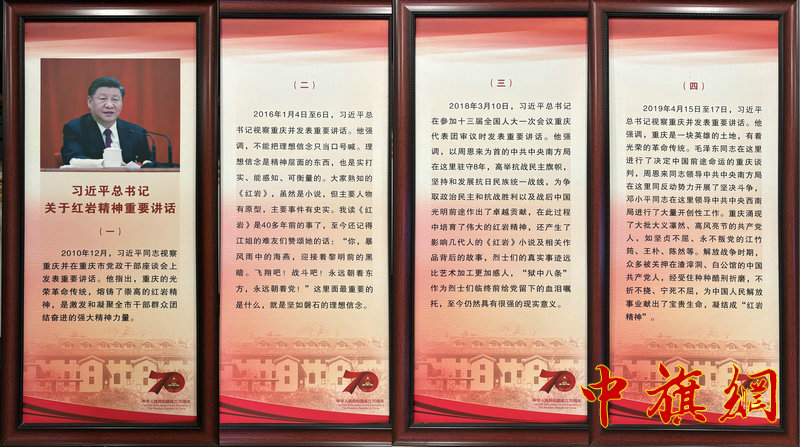 习近平总书记
关于红岩精神重要讲话
（一）
2010年12月，习近平同志视察
重庆并在重庆市党政干部座谈会上
发表重要讲话。他指出，重庆的光
荣革命传统，熔铸了崇高的红岩精
神，是激发和凝聚全市干部群众团
结奋进的强大精神力量。
70
中华人民共和国成立70周年
（二）
2016年1月4日至6日，习近平总
书记视察重庆并发表重要讲话。他强
调，不能把理想信念只当口号喊。理
想信念是精神层面的东西，也是实打
实、能感知、可衡量的。大家熟知的
《红岩》，虽然是小说，但主要人物
有原型，主要事件有史实。我读《红
岩》是40多年前的事了，至今还记得
江姐的难友们赞颂她的话：“你，暴
风雨中的海燕，迎接着黎明前的黑
暗。飞翔吧！战斗吧！永远朝着东
方，永远朝着党！”这里面最重要的
是什么，就是坚如磐石的理想信念。
70
中华人民共和国成立70周年
（三）
2018年3月10日，习近平总书记
在参加十三届全国人大一次会议重庆
代表团审议时发表重要讲话。他强
调，以周恩来为首的中共中央南方局
在这里驻守8年，高举抗战民主旗帜，
坚持和发展抗日民族统一战线，为争
取政治民主和抗战胜利以及战后中国
光明前途作出了卓越贡献，在此过程
中培育了伟大的红岩精神，还产生了
影响几代人的《红岩》小说及相关作
品背后的故事，烈士们的真实事迹远
比艺术加工更加感人，“狱中八条”
作为烈士们临终前给党留下的血泪嘱
托，至今仍然具有很强的现实意义。
70
中华人民共和国成立70周年
（四）
2019年4月15日至17日，习近平总
书记视察重庆并发表重要讲话。他强
调，重庆是一块英雄的土地，有着
光荣的革命传统。毛泽东同志在这里
进行了决定中国前途命运的重庆谈
判，周恩来同志领导中共中央南方局
在这里同反动势力开展了坚决斗争，
邓小平同志在这里领导中共中央西南
局进行了大量开创性工作。重庆涌现
了大批大义凛然、高风亮节的共产党
人，如坚贞不屈、永不叛党的江竹
筠、王朴、陈然等。解放战争时期，
众多被关押在渣滓洞、白公馆的中国
共产党人，经受住种种酷刑折磨，不
折不挠、宁死不屈，为中国人民解放
事业献出了宝贵生命，凝结成“红岩
精神”。
中旗網